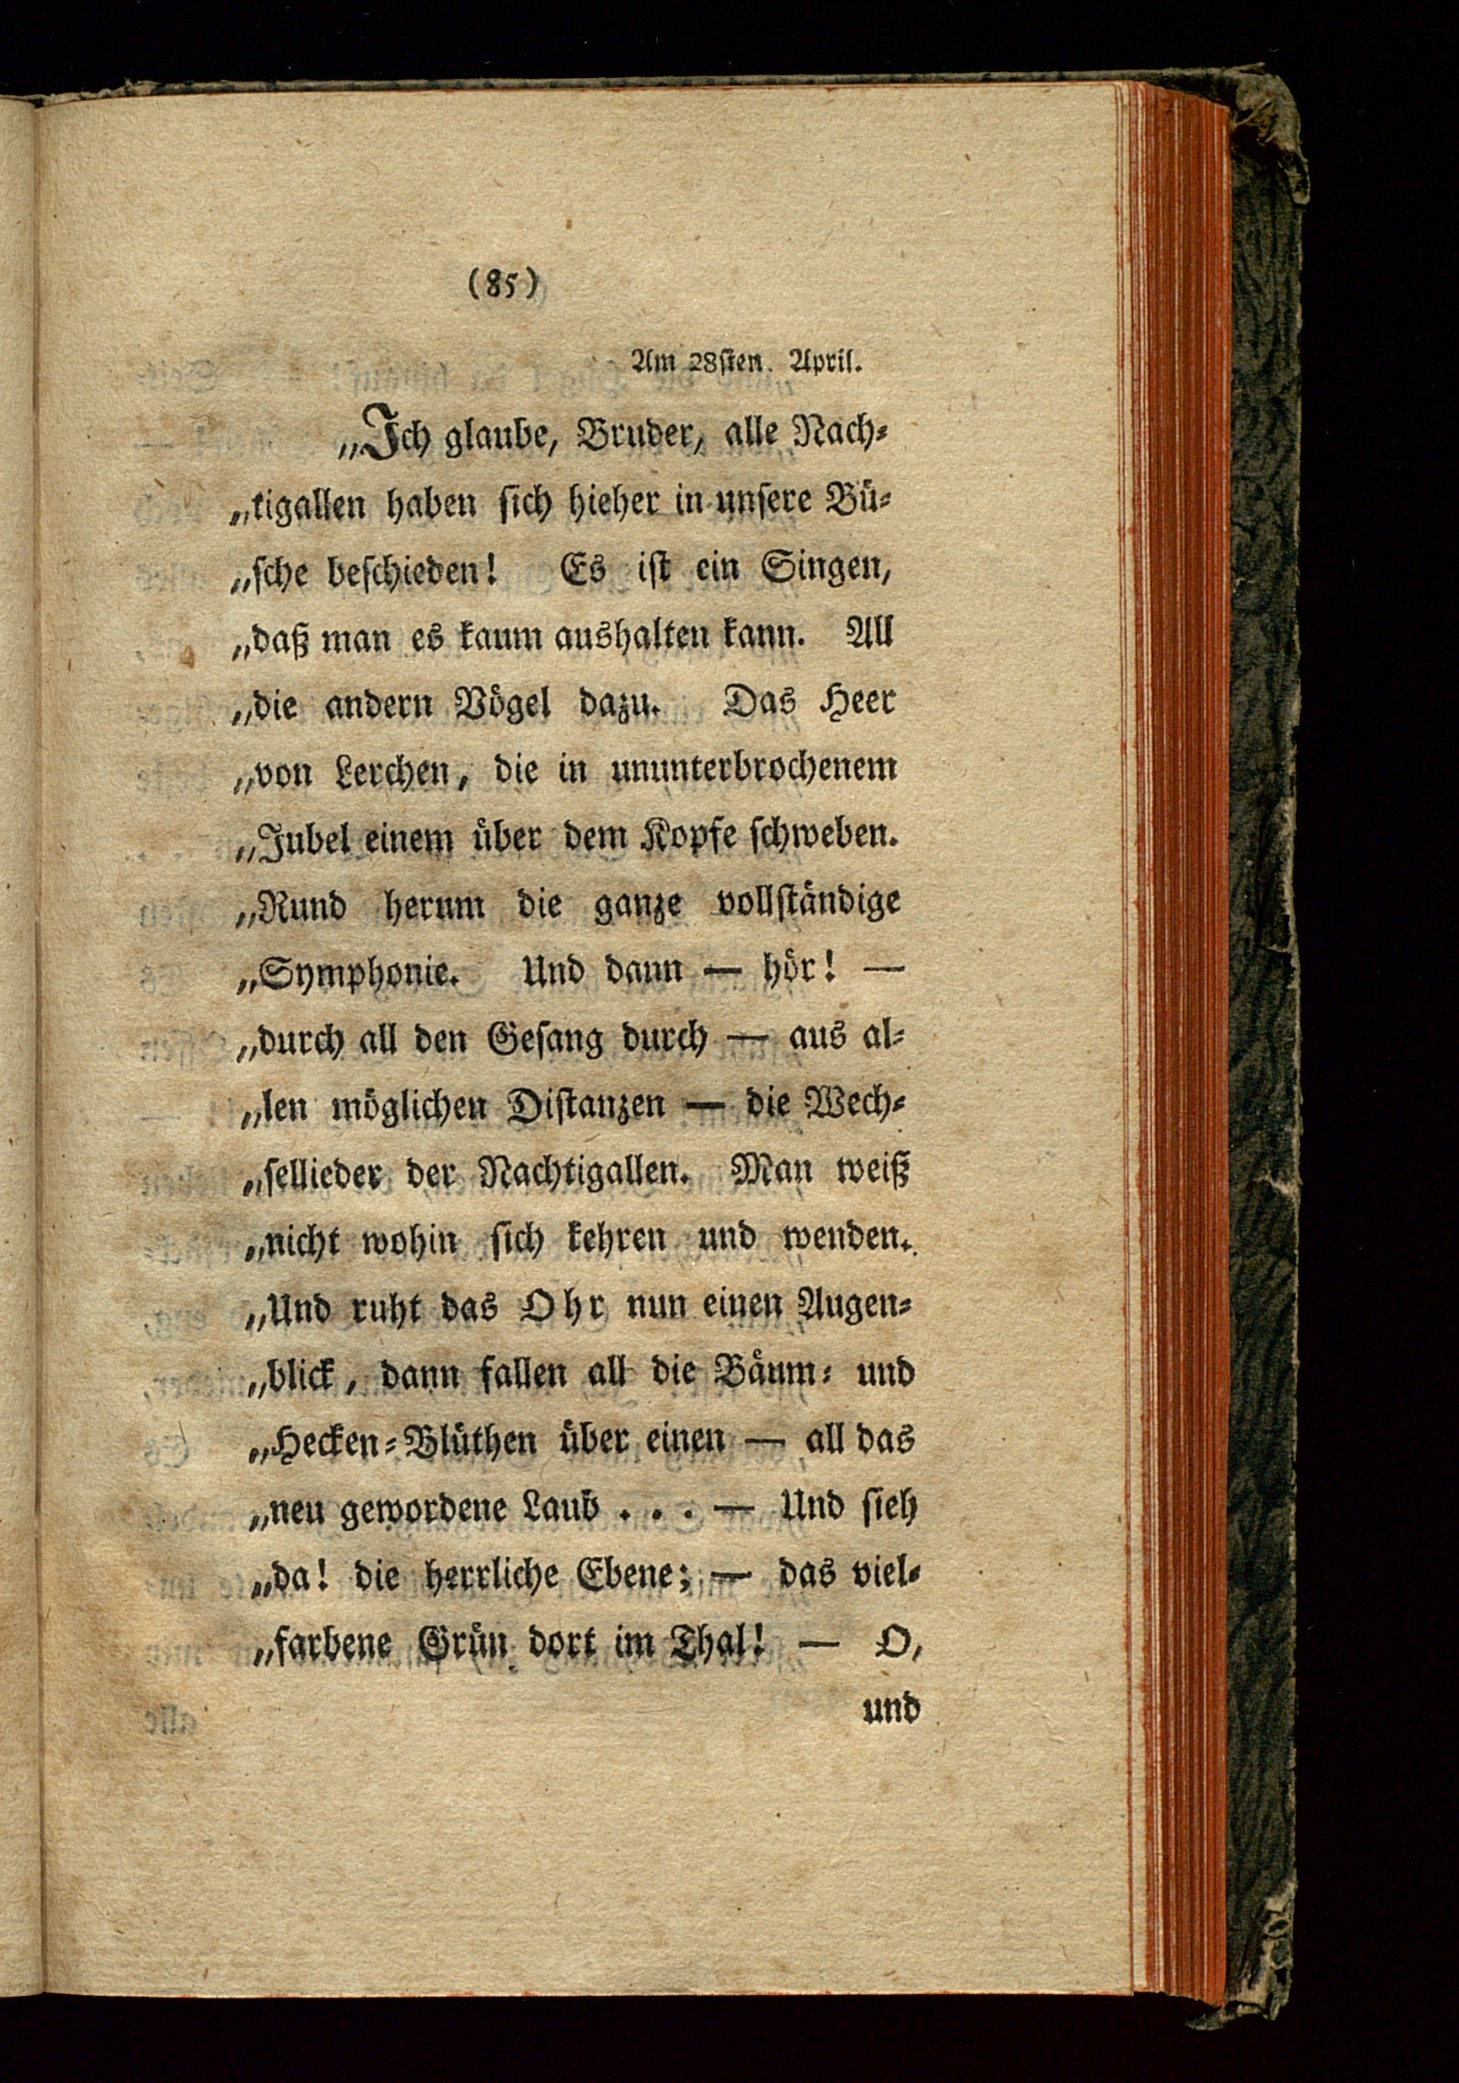 (85)
Am 28sten. April.
„Ich glaube, Bruder, alle Nach-
„tigallen haben sich hieher in unsere Bü-
„sche beschieden! Es ist ein Singen,
„daß man es kaum aushalten kann. All
„die andern Vögel dazu. Das Heer
„von Lerchen, die in ununterbrochenem
„Jubel einem über dem Kopfe schweben.
„Rund herum die ganze vollständige
„Symphonie. Und dann — hör! —
„durch all den Gesang durch — aus al-
„len möglichen Distanzen — die Wech-
„sellieder der Nachtigallen. Man weiß
„nicht wohin sich kehren und wenden.
„Und ruht das Ohr nun einen Augen-
„blick, dann fallen all die Bäum- und
„Hecken-Blüthen über einen — all das
„neu gewordene Laub . . . — Und sieh
„da! die herrliche Ebene; — das viel-
„farbene Grün dort im Thal! — O,
und